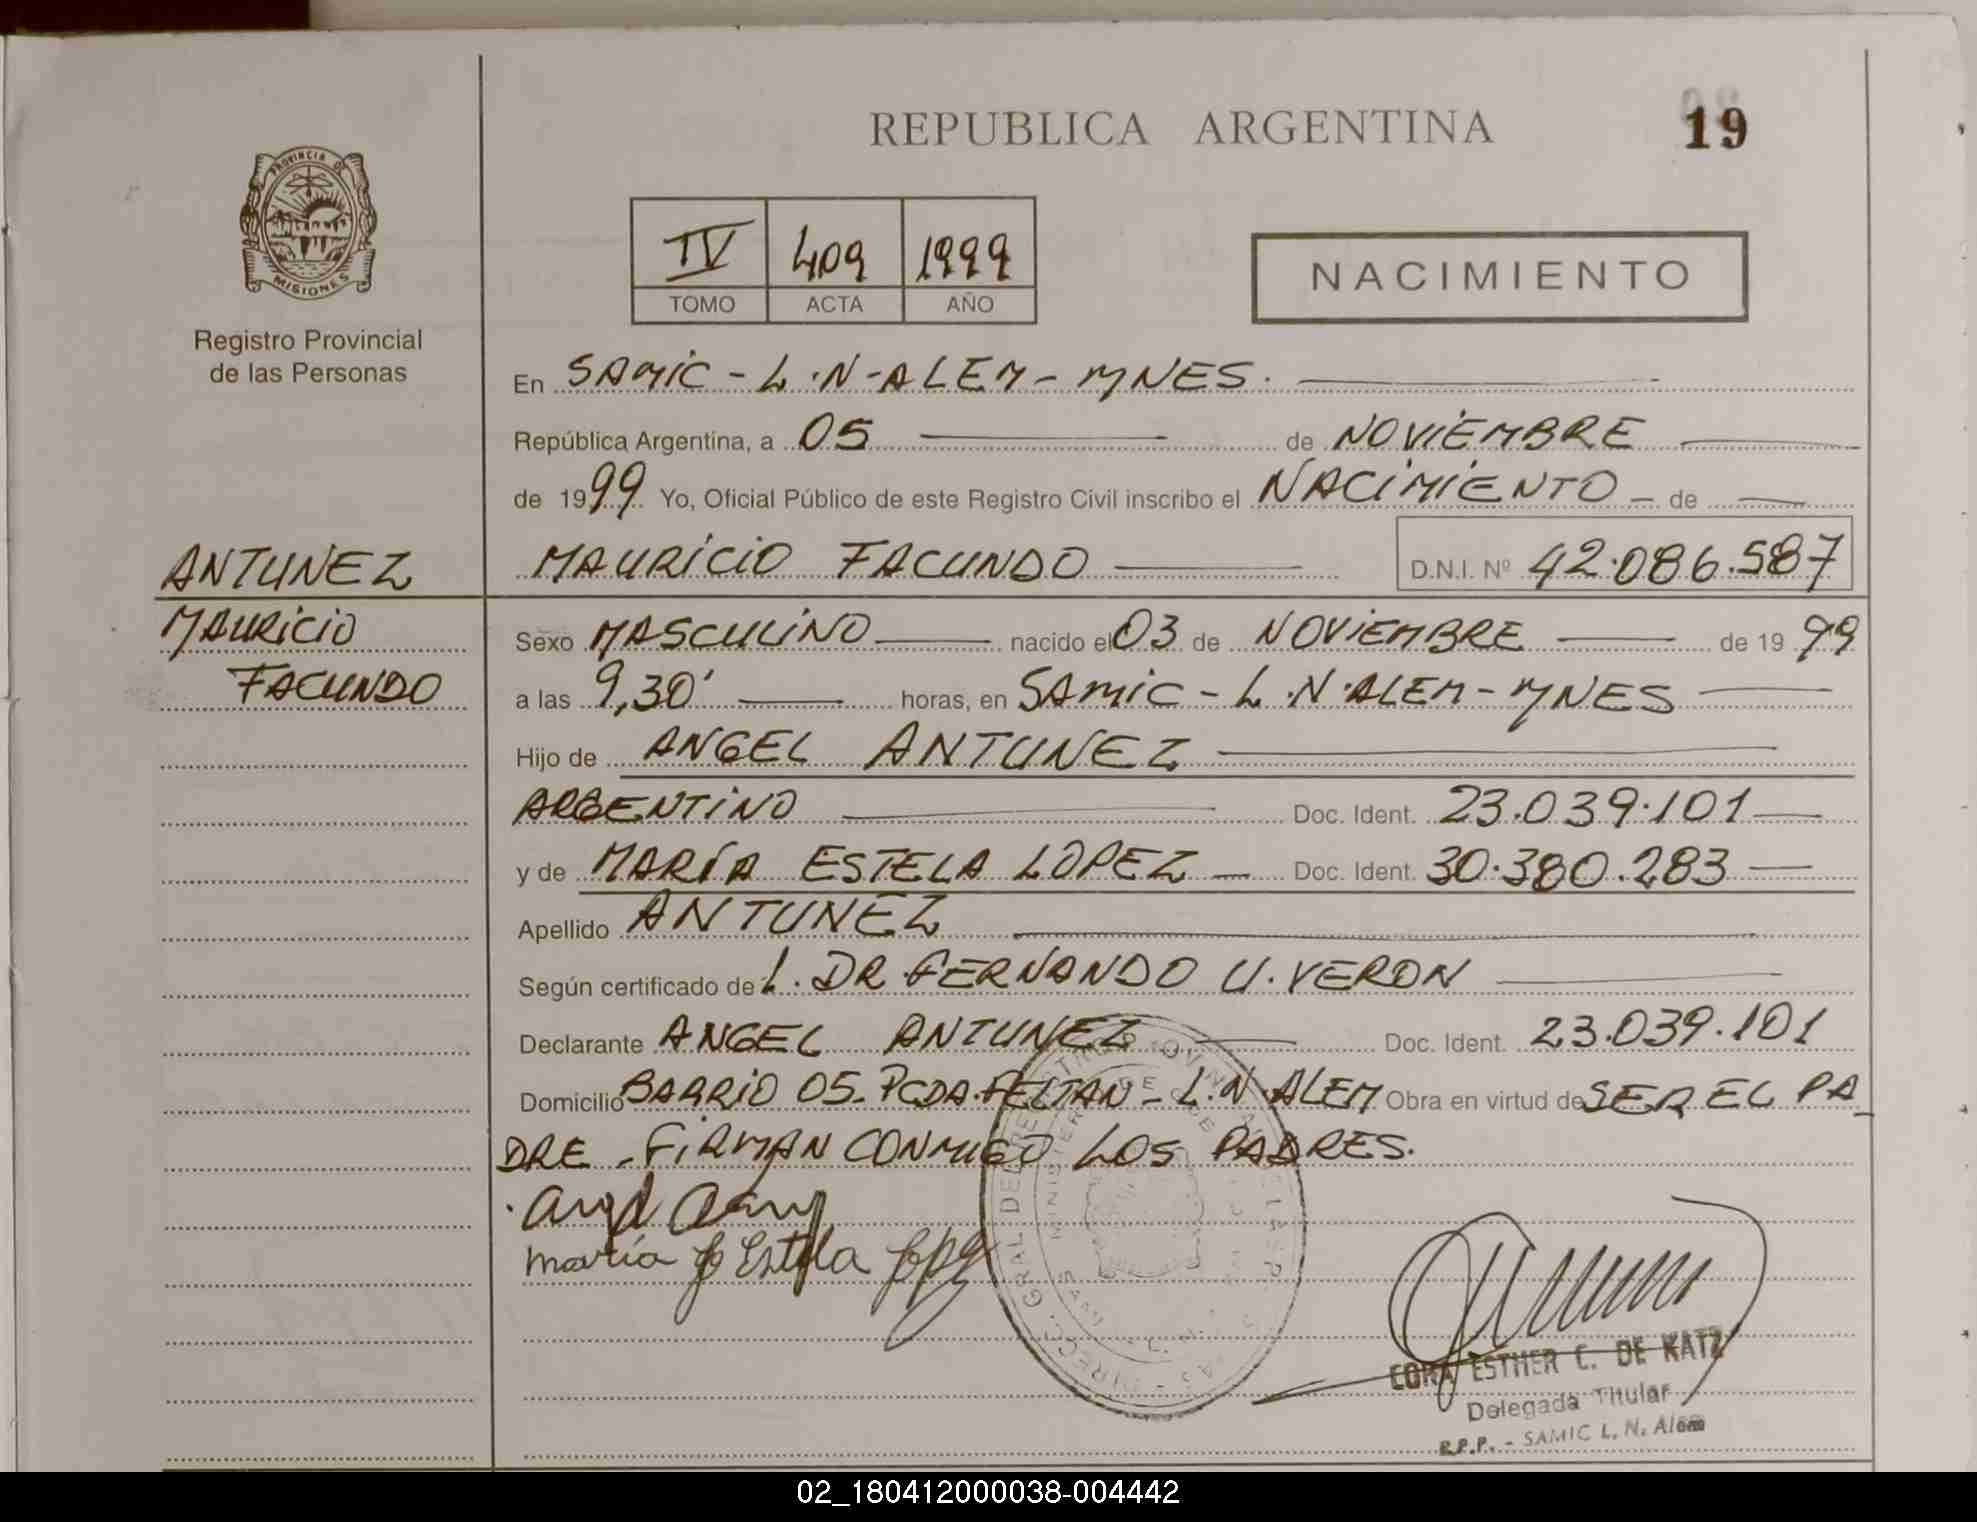 REPUBLICA ARGENTINA
19
PROVINCIA DE
MISIONES
Registro Provincial
de las Personas
IV 409 1999
TOMO ACTA AÑO
NACIMIENTO
En SAMIC - L.N-ALEM - MNES.
República Argentina, a 05 de NOVIEMBRE
de 1999 Yo, Oficial Público de este Registro Civil inscribo el NACIMIENTO de
ANTUNEZ
MAURICIO
FACUNDO
MAURICIO FACUNDO D.N.I. Nº 42.086.587
Sexo MASCULINO nacido el 03 de NOVIEMBRE de 1999
a las 9,30' horas, en SAMIC - L.N.ALEM - MNES
Hijo de ANGEL ANTUNEZ
ARGENTINO Doc. Ident. 23.039.101
y de MARÍA ESTELA LOPEZ Doc. Ident. 30.380.283
Apellido ANTUNEZ
Según certificado de L. DR FERNANDO U. VERON
Declarante ANGEL ANTUNEZ Doc. Ident. 23.039.101
Domicilio BARRIO 05. PCDA. - L.N.ALEM Obra en virtud de SER EL PA
DRE - FIRMAN CONMIGO LOS PADRES.
maría Estela
ESTHER C. DE KATZ
Delegada Titular
R.P.P. - SAMIC L. N. Alem
02_180412000038-004442